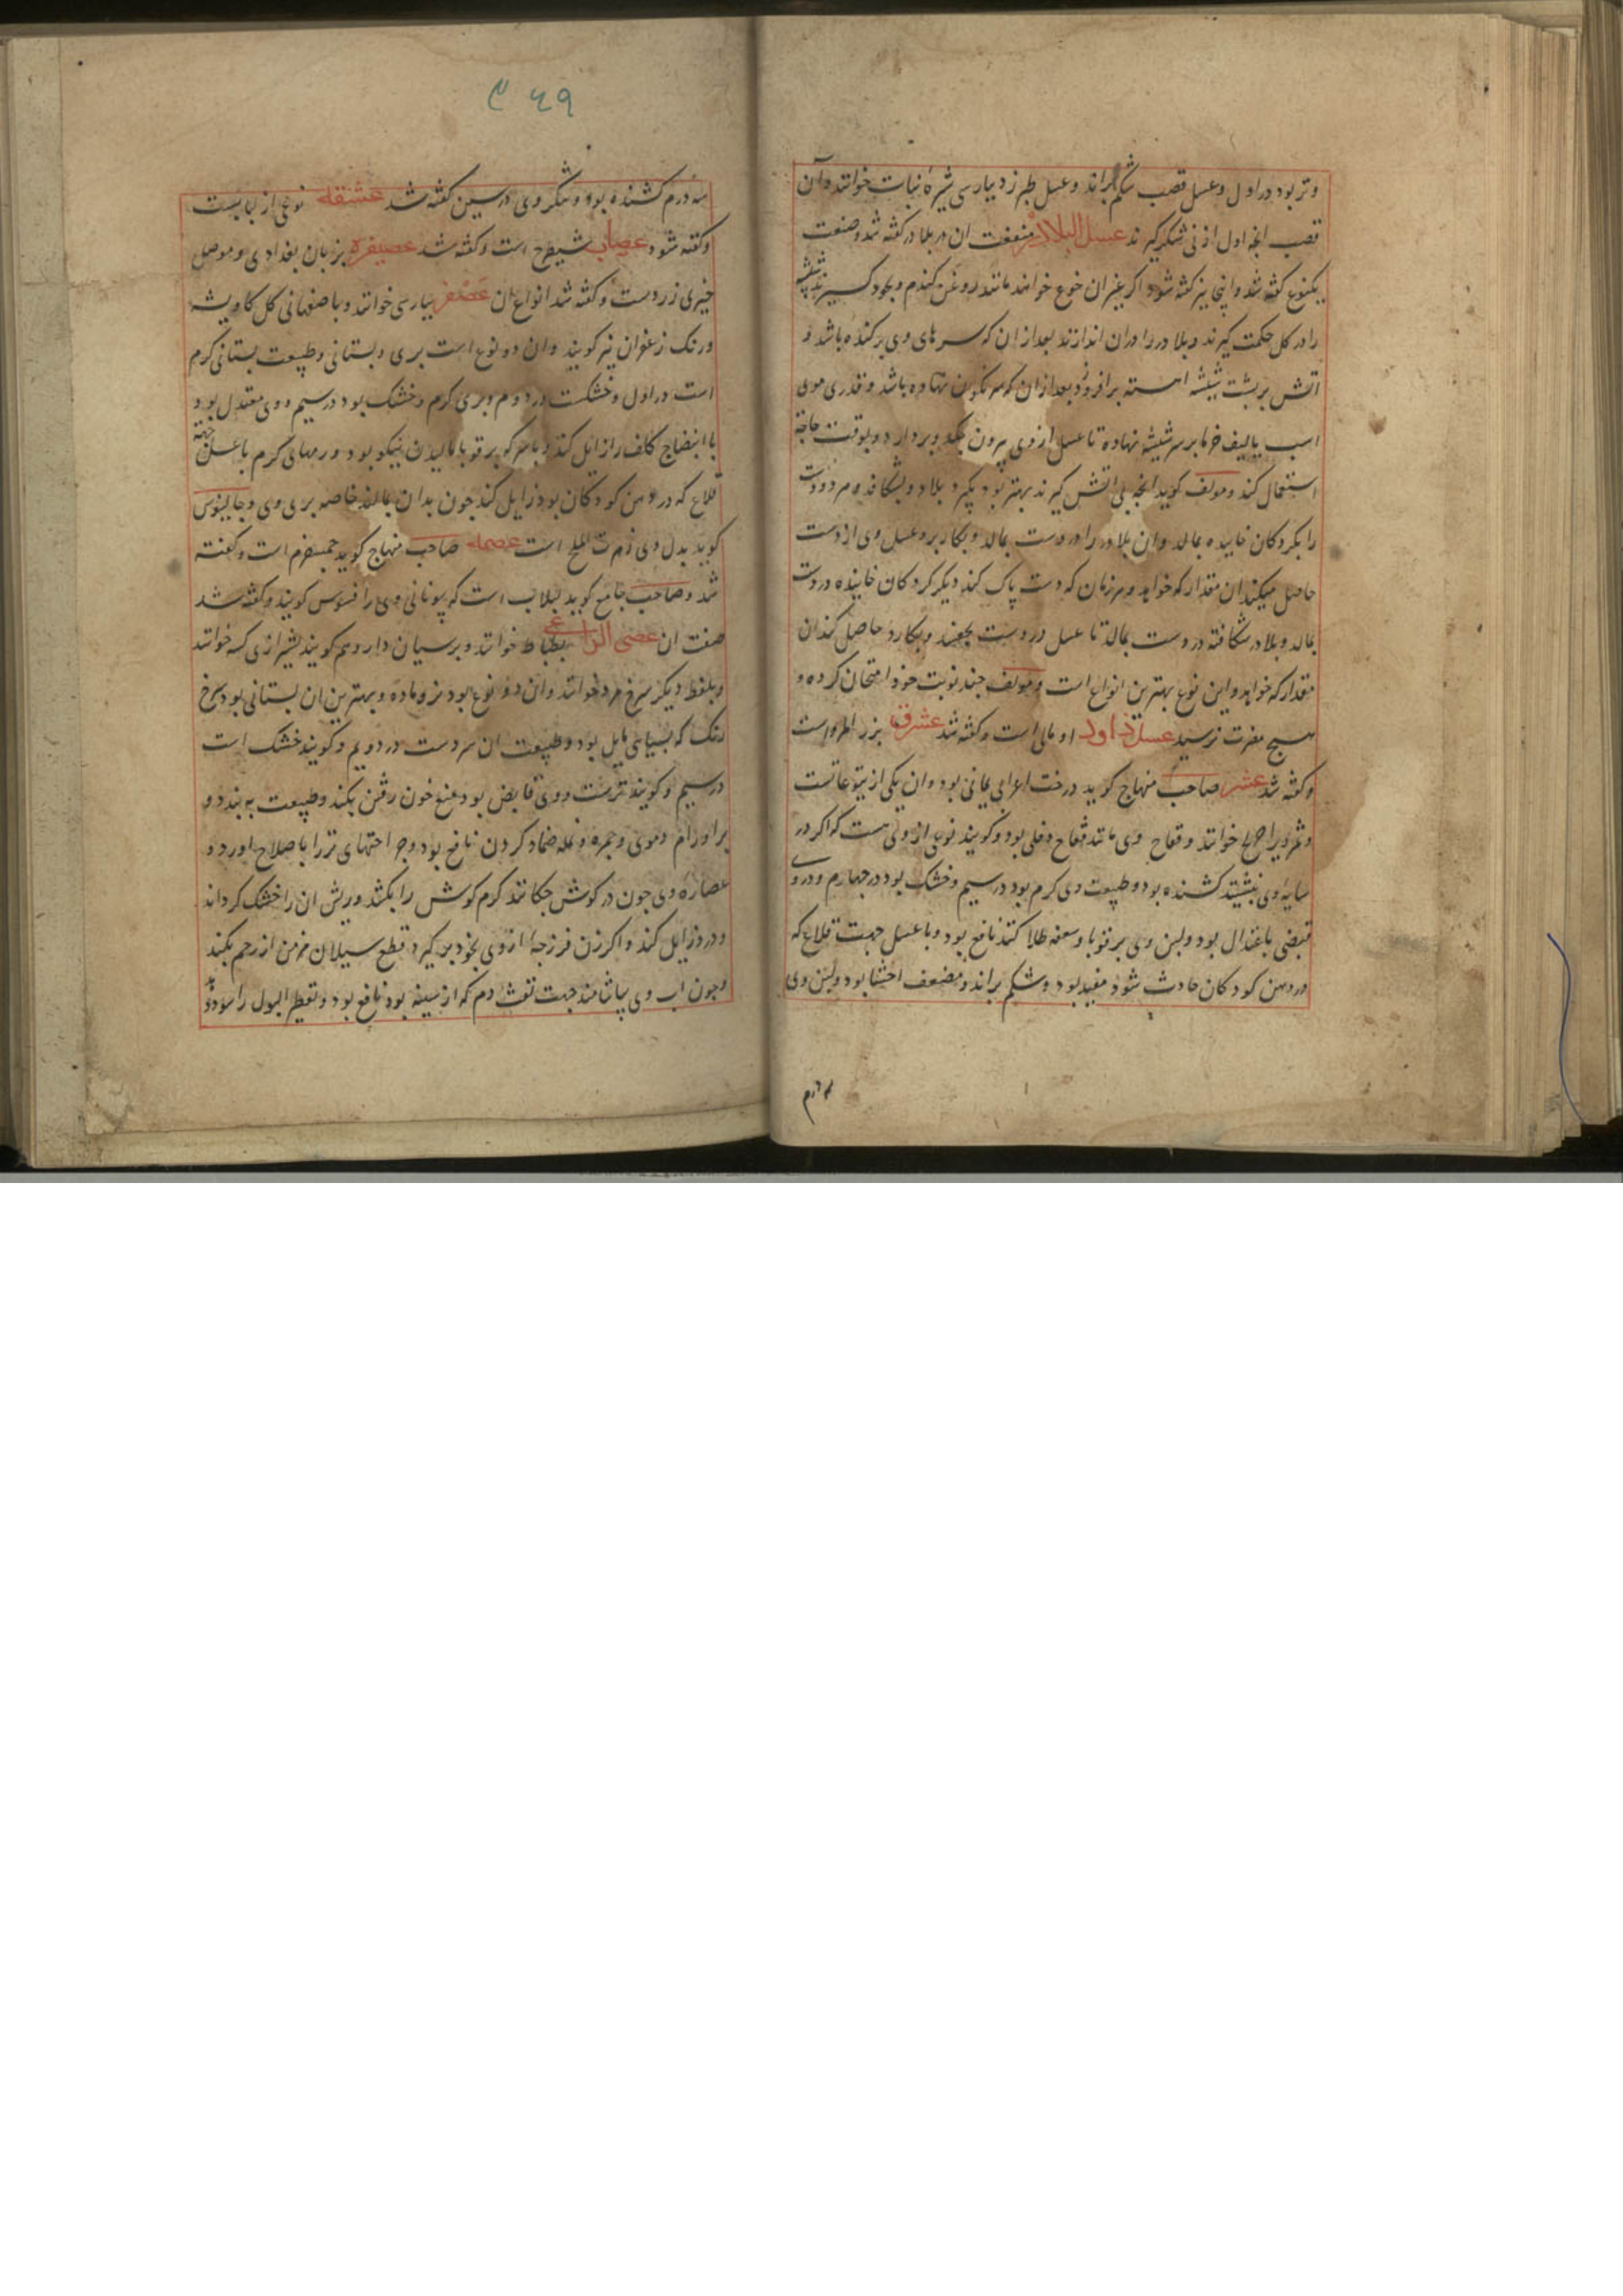 وتر بود در اول وعسل قصب شکم براند وعسل طبرزد بپارسی شیرهٔ نبات خوانند وآن
قصب انچه اول از نی شکر گیرند عسل البلادر منفعت ان در بلادر کفته شد وصنعت
یکنوع کفته شد واینجا نیز کفته شود اکر بغیر ان نوع خوانند مانند روغن کندم وبخود گیرند شیشه
را در کل حکمت گیرند وبلادر را دران اندازند بعد از ان که سرهای وی برکنده باشد و
اتش بر پشت شیشه اهسته برافروزد بعد از ان که سرنکون نهاده باشد وقدری موی
اسب یا لیف خرما بر سر شیشه نهاده تا عسل از وی بیرون چکد وبردارد وبوقت حاجة
استعمال کند ومولف کوید انچه بی اتش گیرند بهتر بود بگیرد بلادر وبشکافد وهر دو دست
را بکردکان خاییده بمالد وان بلادر را در دست بمالد وبکارد برد وعسل وی از دست
حاصل میکند ان مقدار که خواهد وهر زمان که دست پاک کند دیکر کردکان خاییده در دست
بمالد وبلادر شکافته در دست بمالد تا عسل در دست بچسبد وبکارد حاصل کند ان
مقدار که خواهد واین نوع بهترین انواع است ومولف چند نوبت خود امتحان کرده و
هیچ مضرت نرسید عسل داود او مالی است وکفته شد عشرق بزر است
وکفته شد عشر صاحب منهاج کوید درخت اعرابی یمانی بود وان یکی از یتوعاتست
وثمر ویرا خوانند وفقاح وی مانند فقاح دفلی بود وکویند نوعی از وی هست که اکر در
سایهٔ وی نشیند کشنده بود وطبیعت وی کرم بود در سیم وخشک بود در چهارم ودر وی
قبضی باعتدال بود ولبن وی بر قوبا وسعفه طلا کنند نافع بود وبا عسل جهت قلاع که
در دهن کودکان حادث شود مفید بود وشکم براند ومضعف احشا بود ولبن وی
سه درم
۳۶۹
سه درم کشنده بود وشکر وی در سین کفته شد عشنقه نوعی از لبابست
وکفته شود عصاب شیطرج است وکفته شد عصیفره بزبان بغدادی وموصل
خیری زردست وکفته شد انواع ان عصفر بپارسی خوانند وباصفهانی کل کاویشه
ورنک زعفران نیز کویند وان دو نوع است بری وبستانی وطبیعت بستانی کرم
است در اول وخشکست در دوم وبری کرم وخشک بود در سیم ووی معتدل بود
با انضاج کلف را زایل کند وبا سرکه بر قوبا مالیدن نیکو بود ورمهای کرم با عسل جهة
قلاع که در دهن کودکان بود زایل کند چون بدان بمالند خاصه بری وی وجالینوس
کوید بدل وی زهرت الملح است عصمه صاحب منهاج کوید جمسفرم است وکفته
شد وصاحب جامع کوید لبلاب است که یونانی وی را قسوس کویند وکفته شد
صفت ان عصی الراعی بطباط خوانند وبرسیان دارو هم کویند بشیرازی کسه خوانند
وبلفظ دیکر سرخ مرد خوانند وان دو نوع بود نر وماده وبهترین ان بستانی بود سرخ
رنک که بسیاهی مایل بود وطبیعت ان سردست در دویم وکویند خشک است
در سیم وکویند ترست ووی قابض بود منع خون رفتن بکند وطبیعت به بندد و
بر اورام دموی وجمره ونمله ضماد کردن نافع بود وجراحتهای تر را باصلاح اورد و
عصارهٔ وی چون در کوش چکانند کرم کوش را بکشد وریش ان را خشک کرداند
ودرد زایل کند واکر زن فرزجه از وی بخود بر گیرد قطع سیلان مزمن از رحم بکند
وچون اب وی بیاشامند جهت نفث دم که از سینه بود نافع بود وتقطیر البول را سود دهد